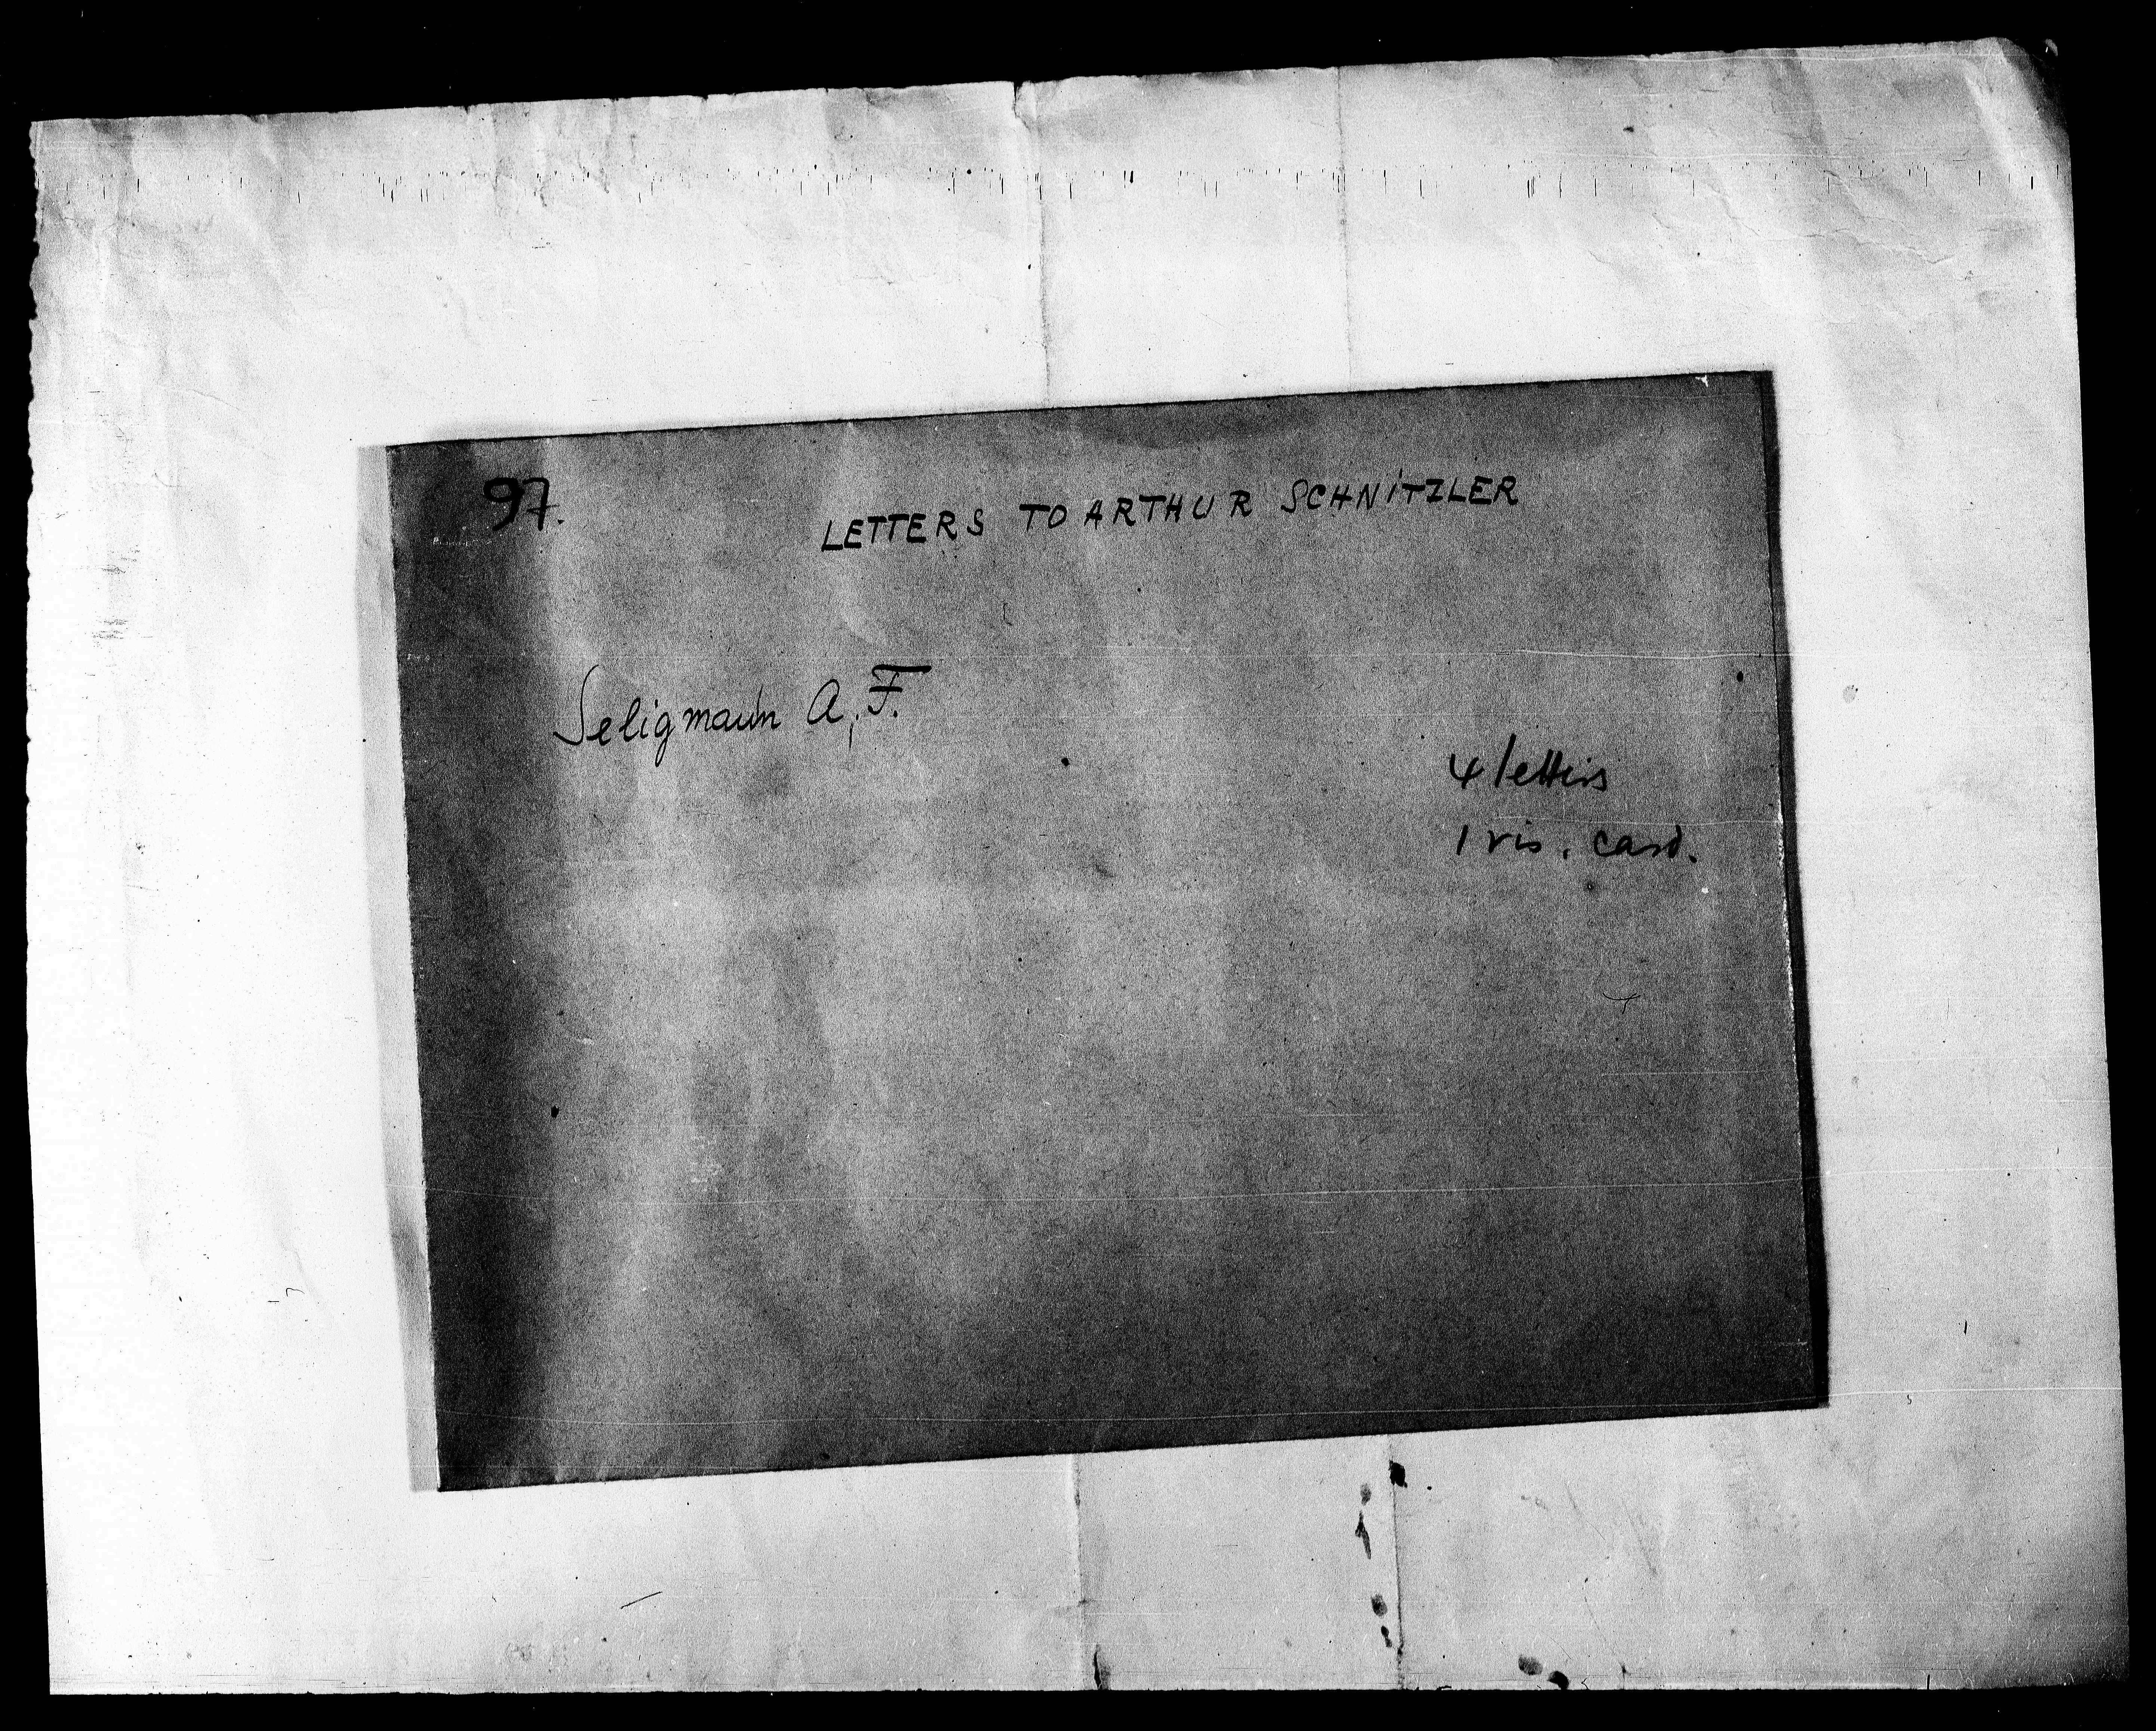 97.
LETTERS TO ARTHUR SCHNITZLER
Seligmann A. F.
4 letters
1 vis. card.